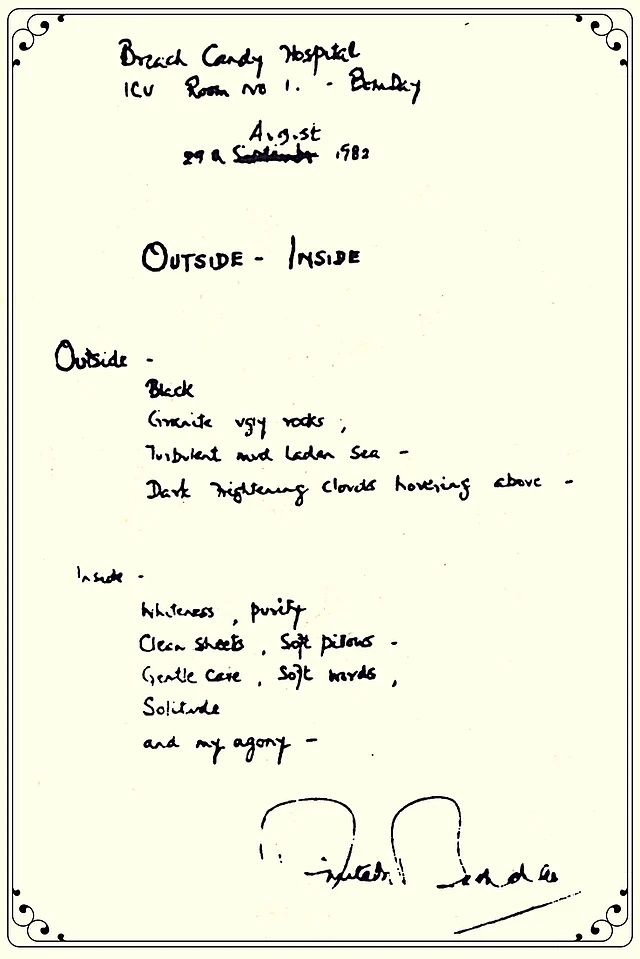 Breach Candy Hospital
ICU Room no 1. - Bombay
August
29th September 1982
OUTSIDE - INSIDE
Outside -
Black
Granite ugly rocks ,
Turbulent mud laden sea -
Dark frightening clouds hovering above -
Inside -
Whiteness , purity
Clean sheets , Soft pillows -
Gentle care , Soft words ,
Solitude
and my agony -
Amitabh Bachchan